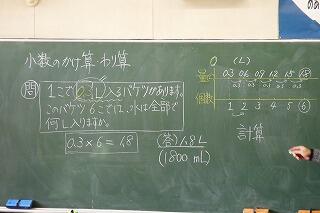 小数のかけ算・わり算
問 1こで0.3L入るバケツがあります。
このバケツ6こでは、水は全部で
何L入りますか。
0.3×6=1.8
(答) 1.8L
(1800mL)
0 (L)
量 0.3 0.6 0.9 1.2 1.5 1.8
0.3 0.3 0.3 0.3 0.3
個数 1 2 3 4 5 6
計算